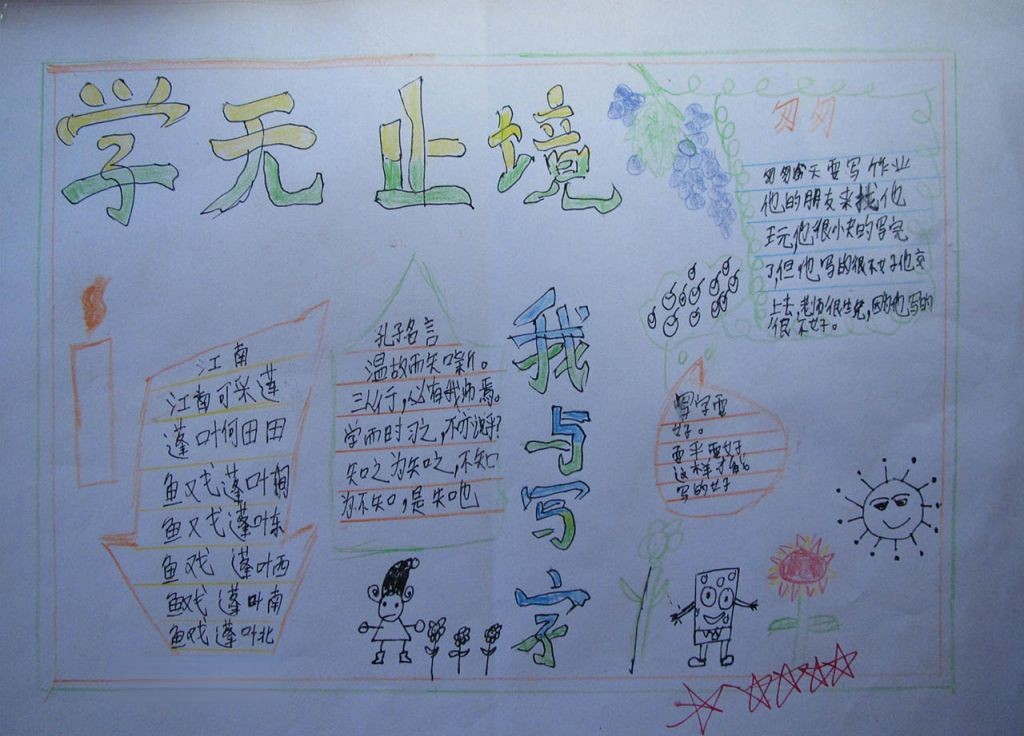 学无止境
我与写字
江南
江南可采莲
蓬叶何田田
鱼戏蓬叶间
鱼戏蓬叶东
鱼戏蓬叶西
鱼戏蓬叶南
鱼戏蓬叶北
孔子名言
温故而知新。
三人行,必有我师焉。
学而时习之,不亦说乎?
知之为知之,不知
为不知,是知也
匆匆
匆匆今天要写作业
他的朋友来找他
玩,他很小夫的写完
了,但他写的很不好他交
上去,老师很生气,因为他写的
很不好。
写字要
好。
要平要好
这样才能
写的好